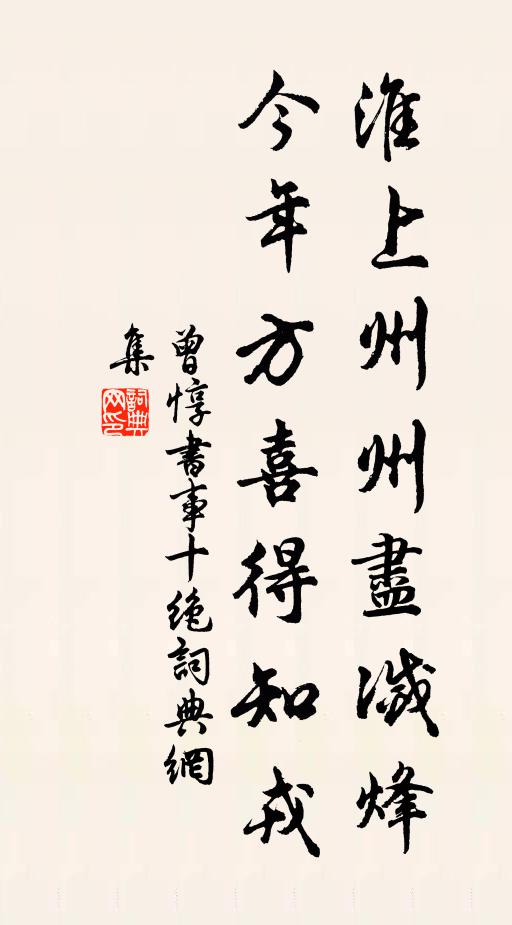 淮上州州盡滅烽
今年方喜得知戎
曾惇書事十絶詞典網
集
詞典
网印